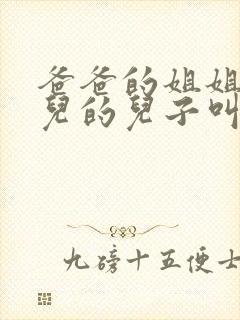 爸爸的姐姐
兒的兒子叫
九磅十五便士